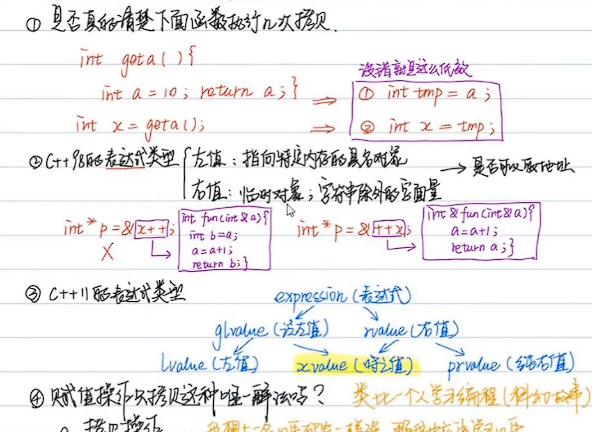 ① 是否真的清楚下面函数执行几次拷贝.
int geta(){
int a = 10; return a; }
int x = geta();
没错就是这么低效
① int tmp = a;
② int x = tmp;
② C++98的表达式类型
左值: 指向特定内存的具名对象
右值: 临时对象; 字符串除外的字面量
→ 是否可以取地址
int* p = &x++;
X
int fun(int& a){
int b=a;
a=a+1;
return b;}
int* p = &++x;
int& fun(int& a){
a=a+1;
return a;}
③ C++11的表达式类型
expression (表达式)
glvalue (泛左值) rvalue (右值)
lvalue (左值) xvalue (将亡值) prvalue (纯右值)
④ 赋值操作只拷贝这种唯一解法吗? 类比一个人学习编程 (科幻故事)
拷贝操作